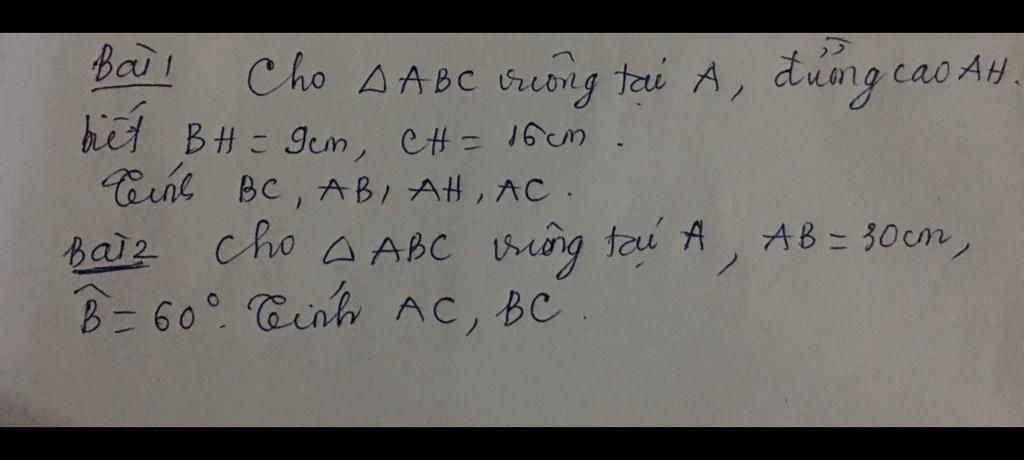 Bài 1 Cho △ABC vuông tại A, đường cao AH.
biết BH = 9cm, CH = 16cm.
Tính BC, AB, AH, AC.
Bài 2 Cho △ABC vuông tại A, AB = 30cm,
B̂ = 60°. Tính AC, BC.